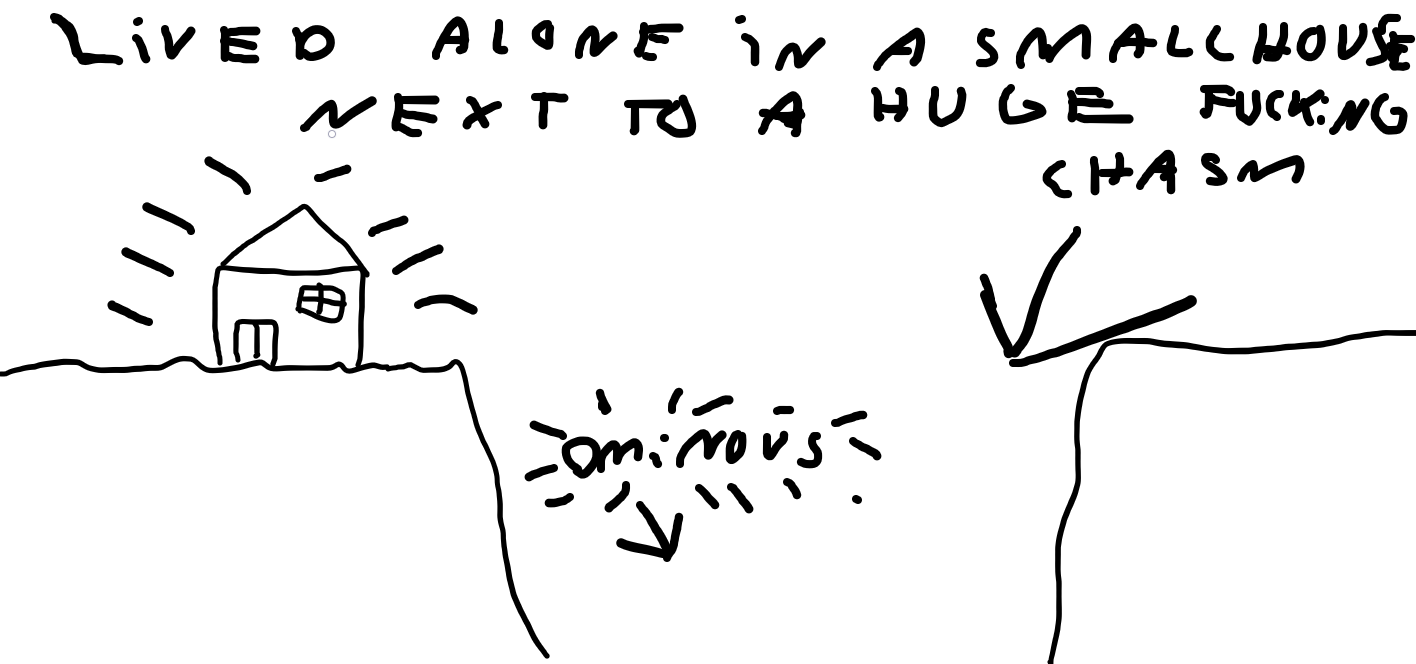 LiVED ALONE iN A SMALL HOUSE
NEXT TO A HUGE FUCKiNG
CHASM
ominous